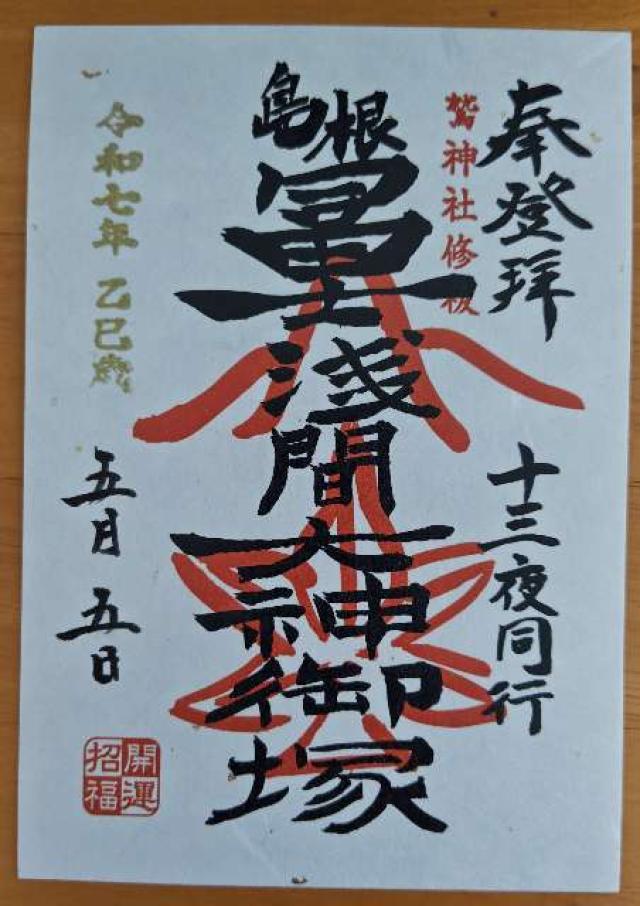 奉登拝
十三夜同行
鷲神社修祓
島根
冨士
浅間
大神
御塚
令和七年 乙巳歳
五月五日
開運
招福